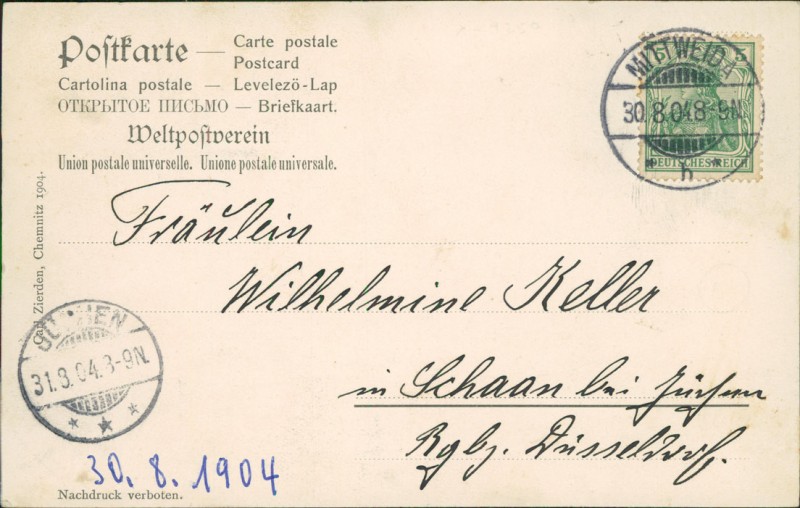 Postkarte — Carte postale
Postcard
Cartolina postale — Levelezö-Lap
ОТКРЫТОЕ ПИСЬМО — Briefkaart.
Weltpostverein
Union postale universelle. Unione postale universale.
MITTWEIDA
30.8.04.8-9N.
* h *
DEUTSCHES REICH
Carl Zierden, Chemnitz 1904.
Fräulein
Wilhelmine Keller
in Schaan bei Jüchen
Rgbz. Düsseldorf.
JÜCHEN
31.8.04.8-9N.
* * *
30. 8. 1904
Nachdruck verboten.